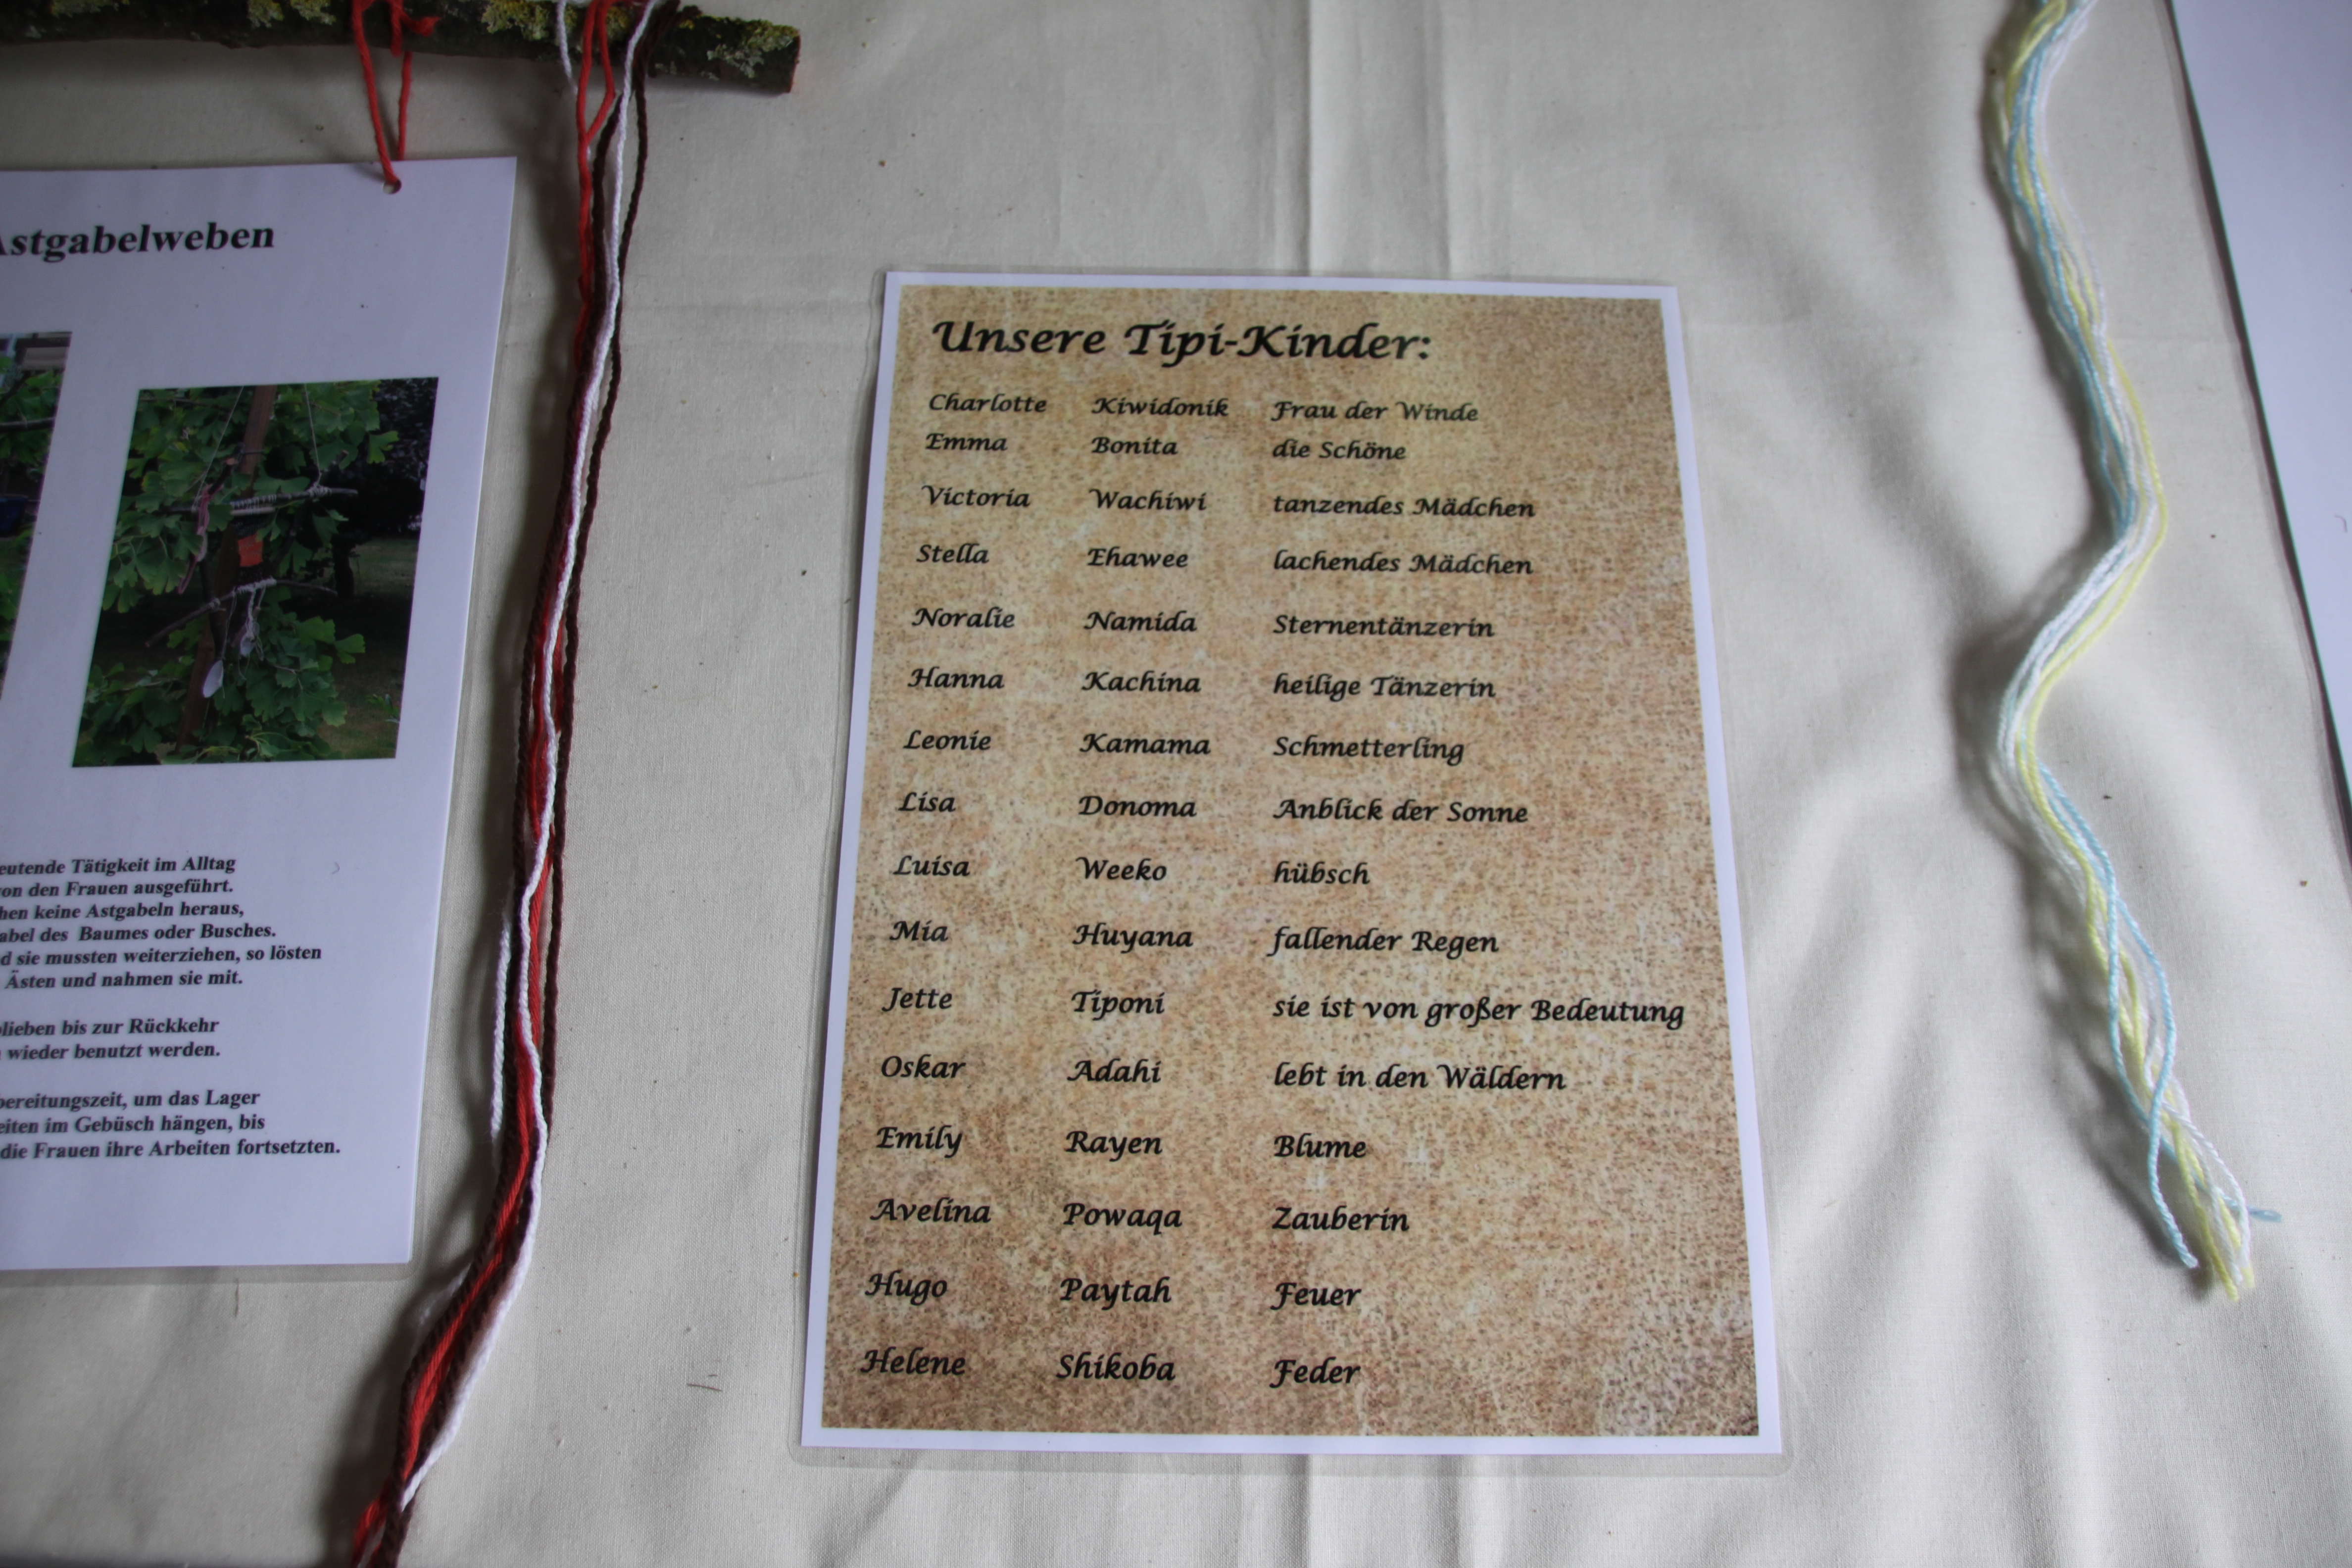 Astgabelweben
eutende Tätigkeit im Alltag
von den Frauen ausgeführt.
hen keine Astgabeln heraus,
abel des Baumes oder Busches.
d sie mussten weiterziehen, so lösten
Ästen und nahmen sie mit.
blieben bis zur Rückkehr
wieder benutzt werden.
bereitungszeit, um das Lager
eiten im Gebüsch hängen, bis
die Frauen ihre Arbeiten fortsetzten.
Unsere Tipi-Kinder:
Charlotte Kiwidonik Frau der Winde
Emma Bonita die Schöne
Victoria Wachiwi tanzendes Mädchen
Stella Ehawee lachendes Mädchen
Noralie Namida Sternentänzerin
Hanna Kachina heilige Tänzerin
Leonie Kamama Schmetterling
Lisa Donoma Anblick der Sonne
Luisa Weeko hübsch
Mia Huyana fallender Regen
Jette Tiponi sie ist von großer Bedeutung
Oskar Adahi lebt in den Wäldern
Emily Rayen Blume
Avelina Powaqa Zauberin
Hugo Paytah Feuer
Helene Shikoba Feder